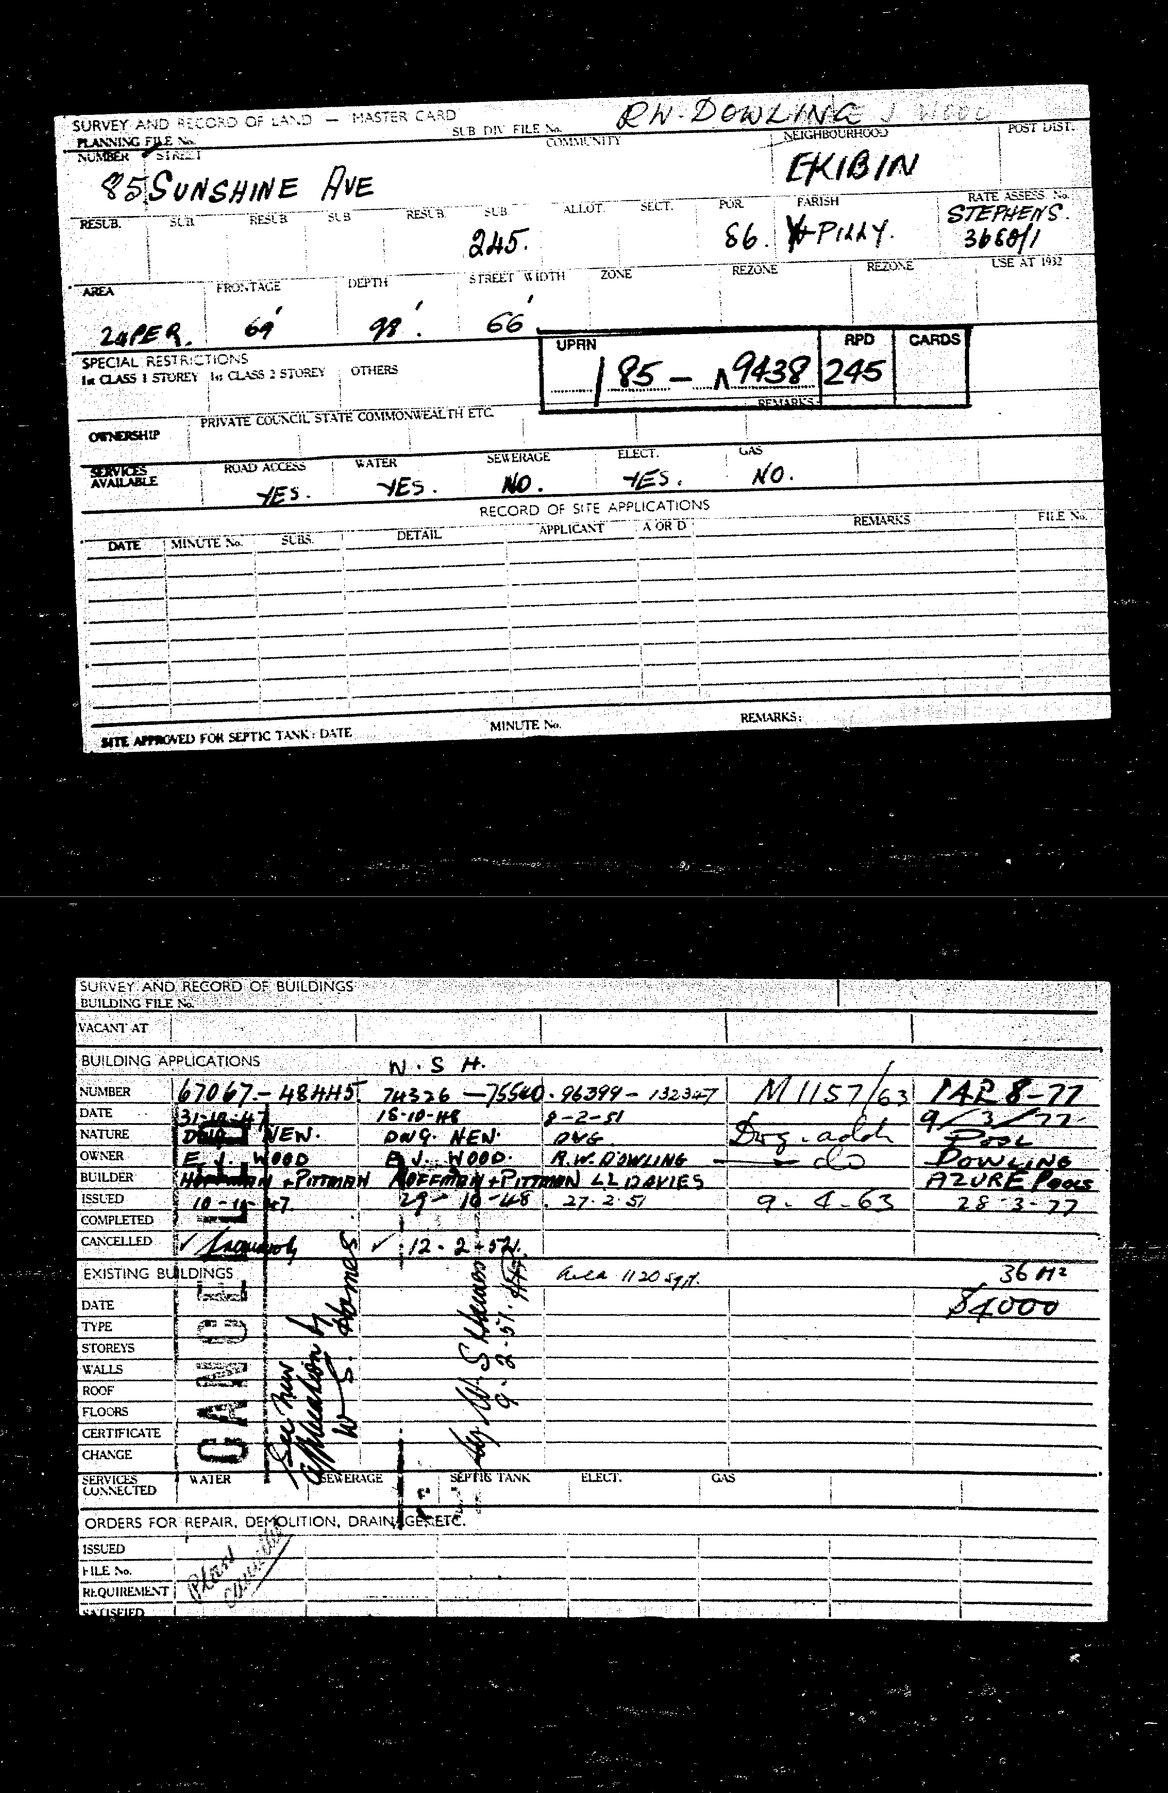 SURVEY AND RECORD OF LAND — MASTER CARD
RW. DOWLING
PLANNING FILE No.
SUB DIV FILE No.
COMMUNITY
NEIGHBOURHOOD
POST DIST.
NUMBER STREET
85 SUNSHINE AVE
EKIBIN
RESUB. SUB. RESUB. SUB RESUB. SUB ALLOT. SECT. POR. PARISH RATE ASSESS. No.
245. 86. PILLY. STEPHENS.
3680/1
AREA FRONTAGE DEPTH STREET WIDTH ZONE REZONE REZONE USE AT 1932
24 PER. 69' 98'. 66'
SPECIAL RESTRICTIONS
1st CLASS 1 STOREY 1st CLASS 2 STOREY OTHERS
UPRN RPD CARDS
/ 85 – 9438 245
REMARKS
OWNERSHIP PRIVATE COUNCIL STATE COMMONWEALTH ETC.
SERVICES AVAILABLE ROAD ACCESS WATER SEWERAGE ELECT. GAS
YES. YES. NO. YES. NO.
RECORD OF SITE APPLICATIONS
DATE MINUTE No. SUBS. DETAIL APPLICANT A OR D REMARKS FILE No.
SITE APPROVED FOR SEPTIC TANK: DATE MINUTE No. REMARKS:
SURVEY AND RECORD OF BUILDINGS
BUILDING FILE No.
VACANT AT
BUILDING APPLICATIONS W.S H.
NUMBER 67067 – 48445 74326 – 75540. 96399 – 132347 M1157/63 IAR 8-77
DATE 18-10-48 8-2-51 9/3/77
NATURE DWG NEW. DWG. NEW. DWG. Dwg. addn Pool
OWNER E J. WOOD E J. WOOD. R.W. DOWLING do DOWLING
BUILDER HOFFMAN + PITTMAN HOFFMAN + PITTMAN LL DAVIES AZURE Pools
ISSUED 29-10-48. 27.2.51 9.4.63 28-3-77
COMPLETED
CANCELLED ✓ ✓ 12.2.51.
EXISTING BUILDINGS area 1120 sq ft. 36 M²
DATE $4000
TYPE
STOREYS
WALLS
ROOF
FLOORS
CERTIFICATE
CHANGE
CANCEL
See new
application by
W. S. Homes
by W. S. Homes
9-2-51.
SERVICES CONNECTED WATER SEWERAGE SEPTIC TANK ELECT. GAS
ORDERS FOR REPAIR, DEMOLITION, DRAINAGE, ETC.
ISSUED
FILE No.
REQUIREMENT
SATISFIED
Plan
cancelled